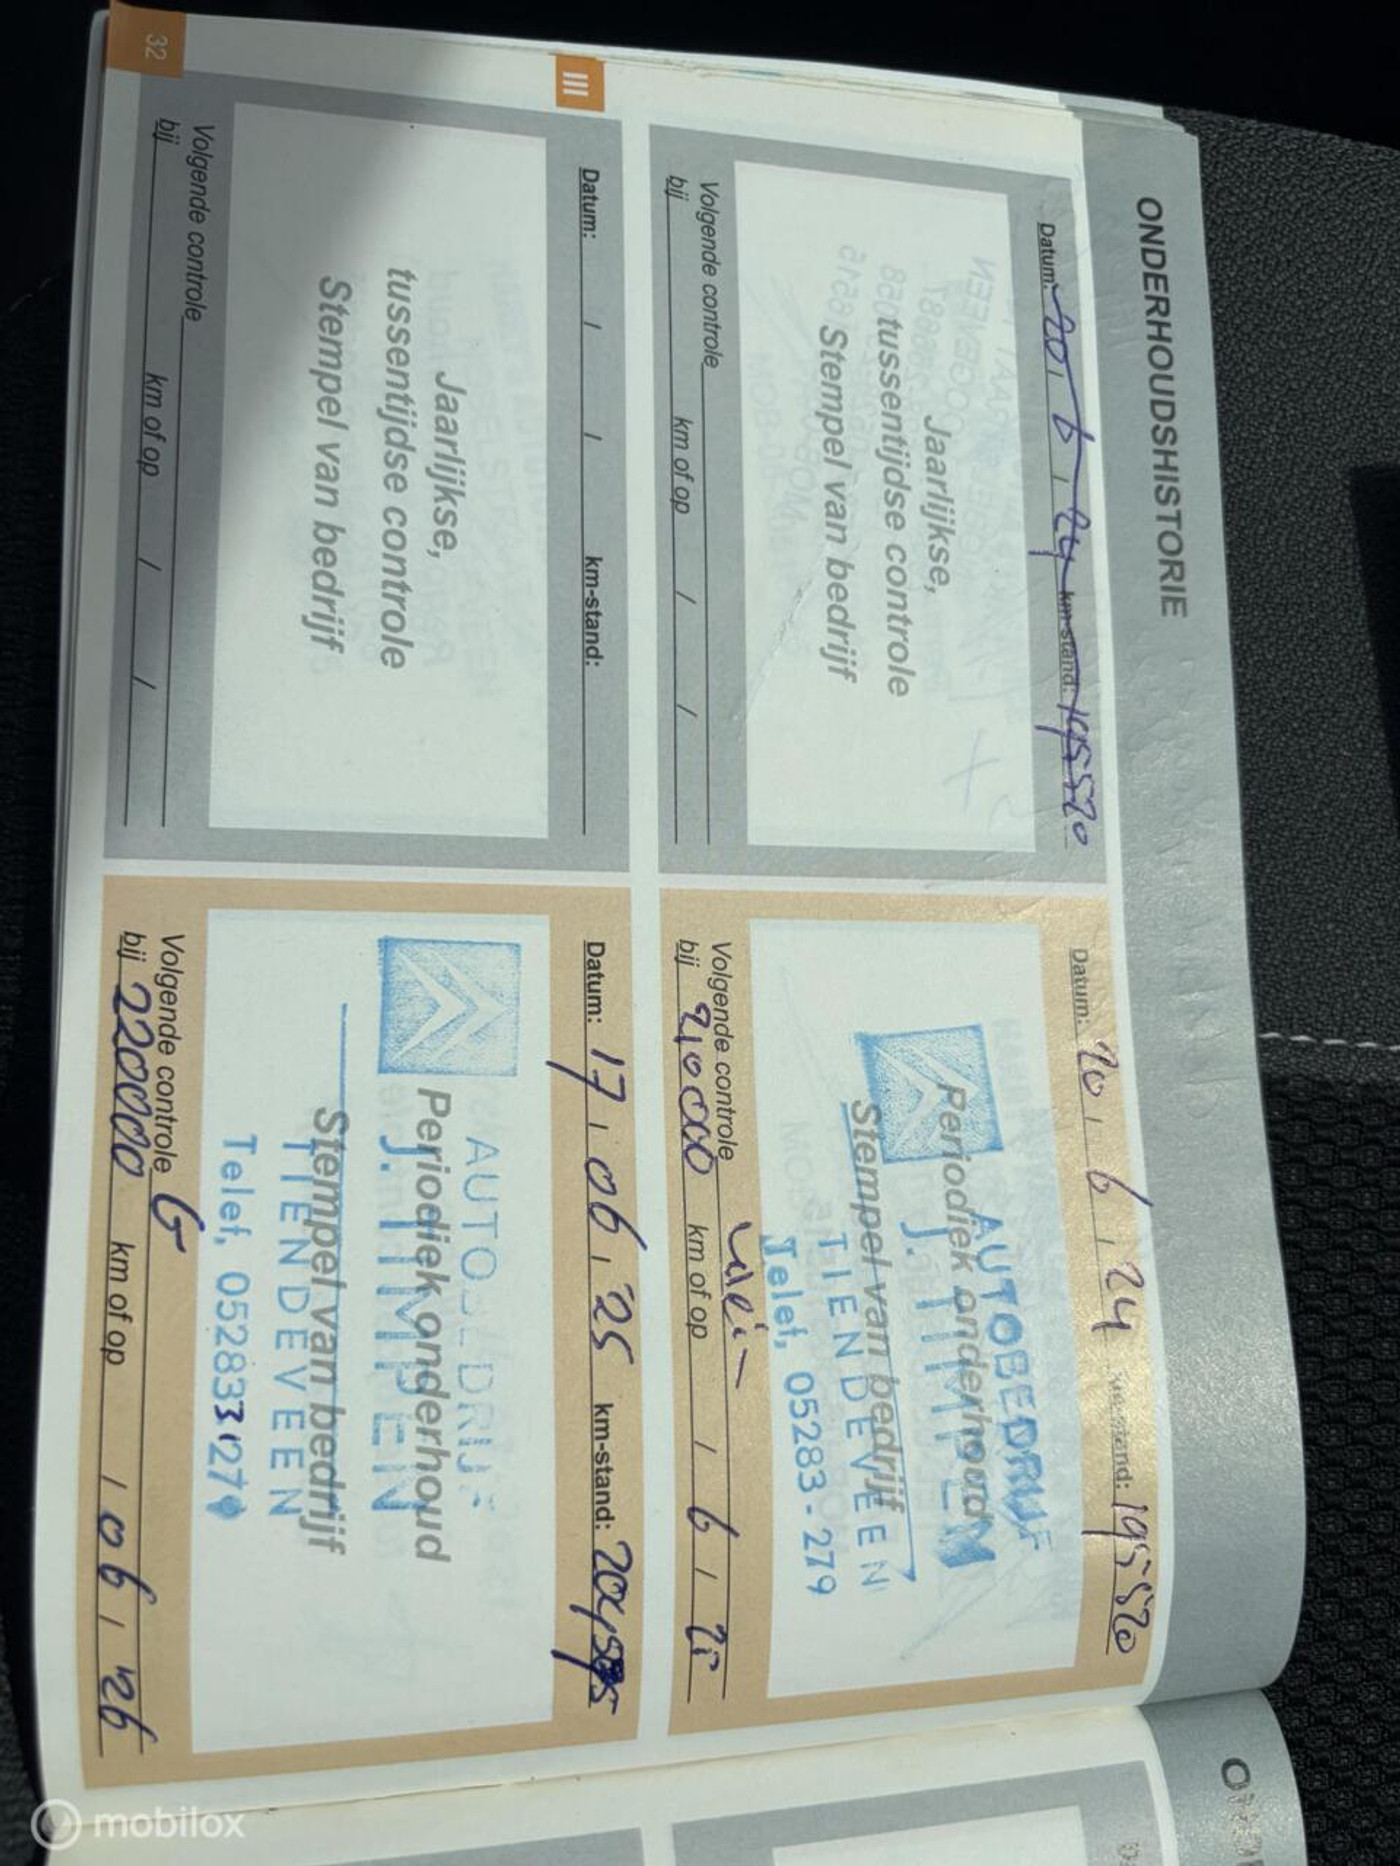 ONDERHOUDSHISTORIE
Datum: 20 / 6 / 24 km-stand: 195520
Jaarlijkse,
tussentijdse controle
Stempel van bedrijf
Volgende controle
bij km of op / /
Datum: 20 / 6 / 24 km-stand: 195520
AUTOBEDRIJF
Periodiek onderhoud
J. TIMPEN
Stempel van bedrijf
TIENDEVEEN
Telef, 05283-279
Volgende controle
bij 210000 km of op / 6 / 25
III
Datum: / / km-stand:
Jaarlijkse,
tussentijdse controle
Stempel van bedrijf
Volgende controle
bij km of op / /
Datum: 17 / 06 / 25 km-stand:
Periodiek onderhoud
J. TIMPEN
Stempel van bedrijf
TIENDEVEEN
Telef,
Volgende controle G
bij 220000 km of op / 06 / 26
32
mobilox